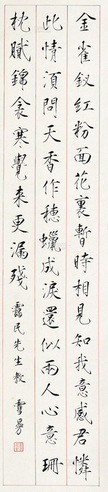 金雀釵紅粉面花裏暫時相見知我意感君憐
此情須問天香作穗蠟成淚還似兩人心意珊
枕膩錦衾寒覺來更漏殘 靄民先生教